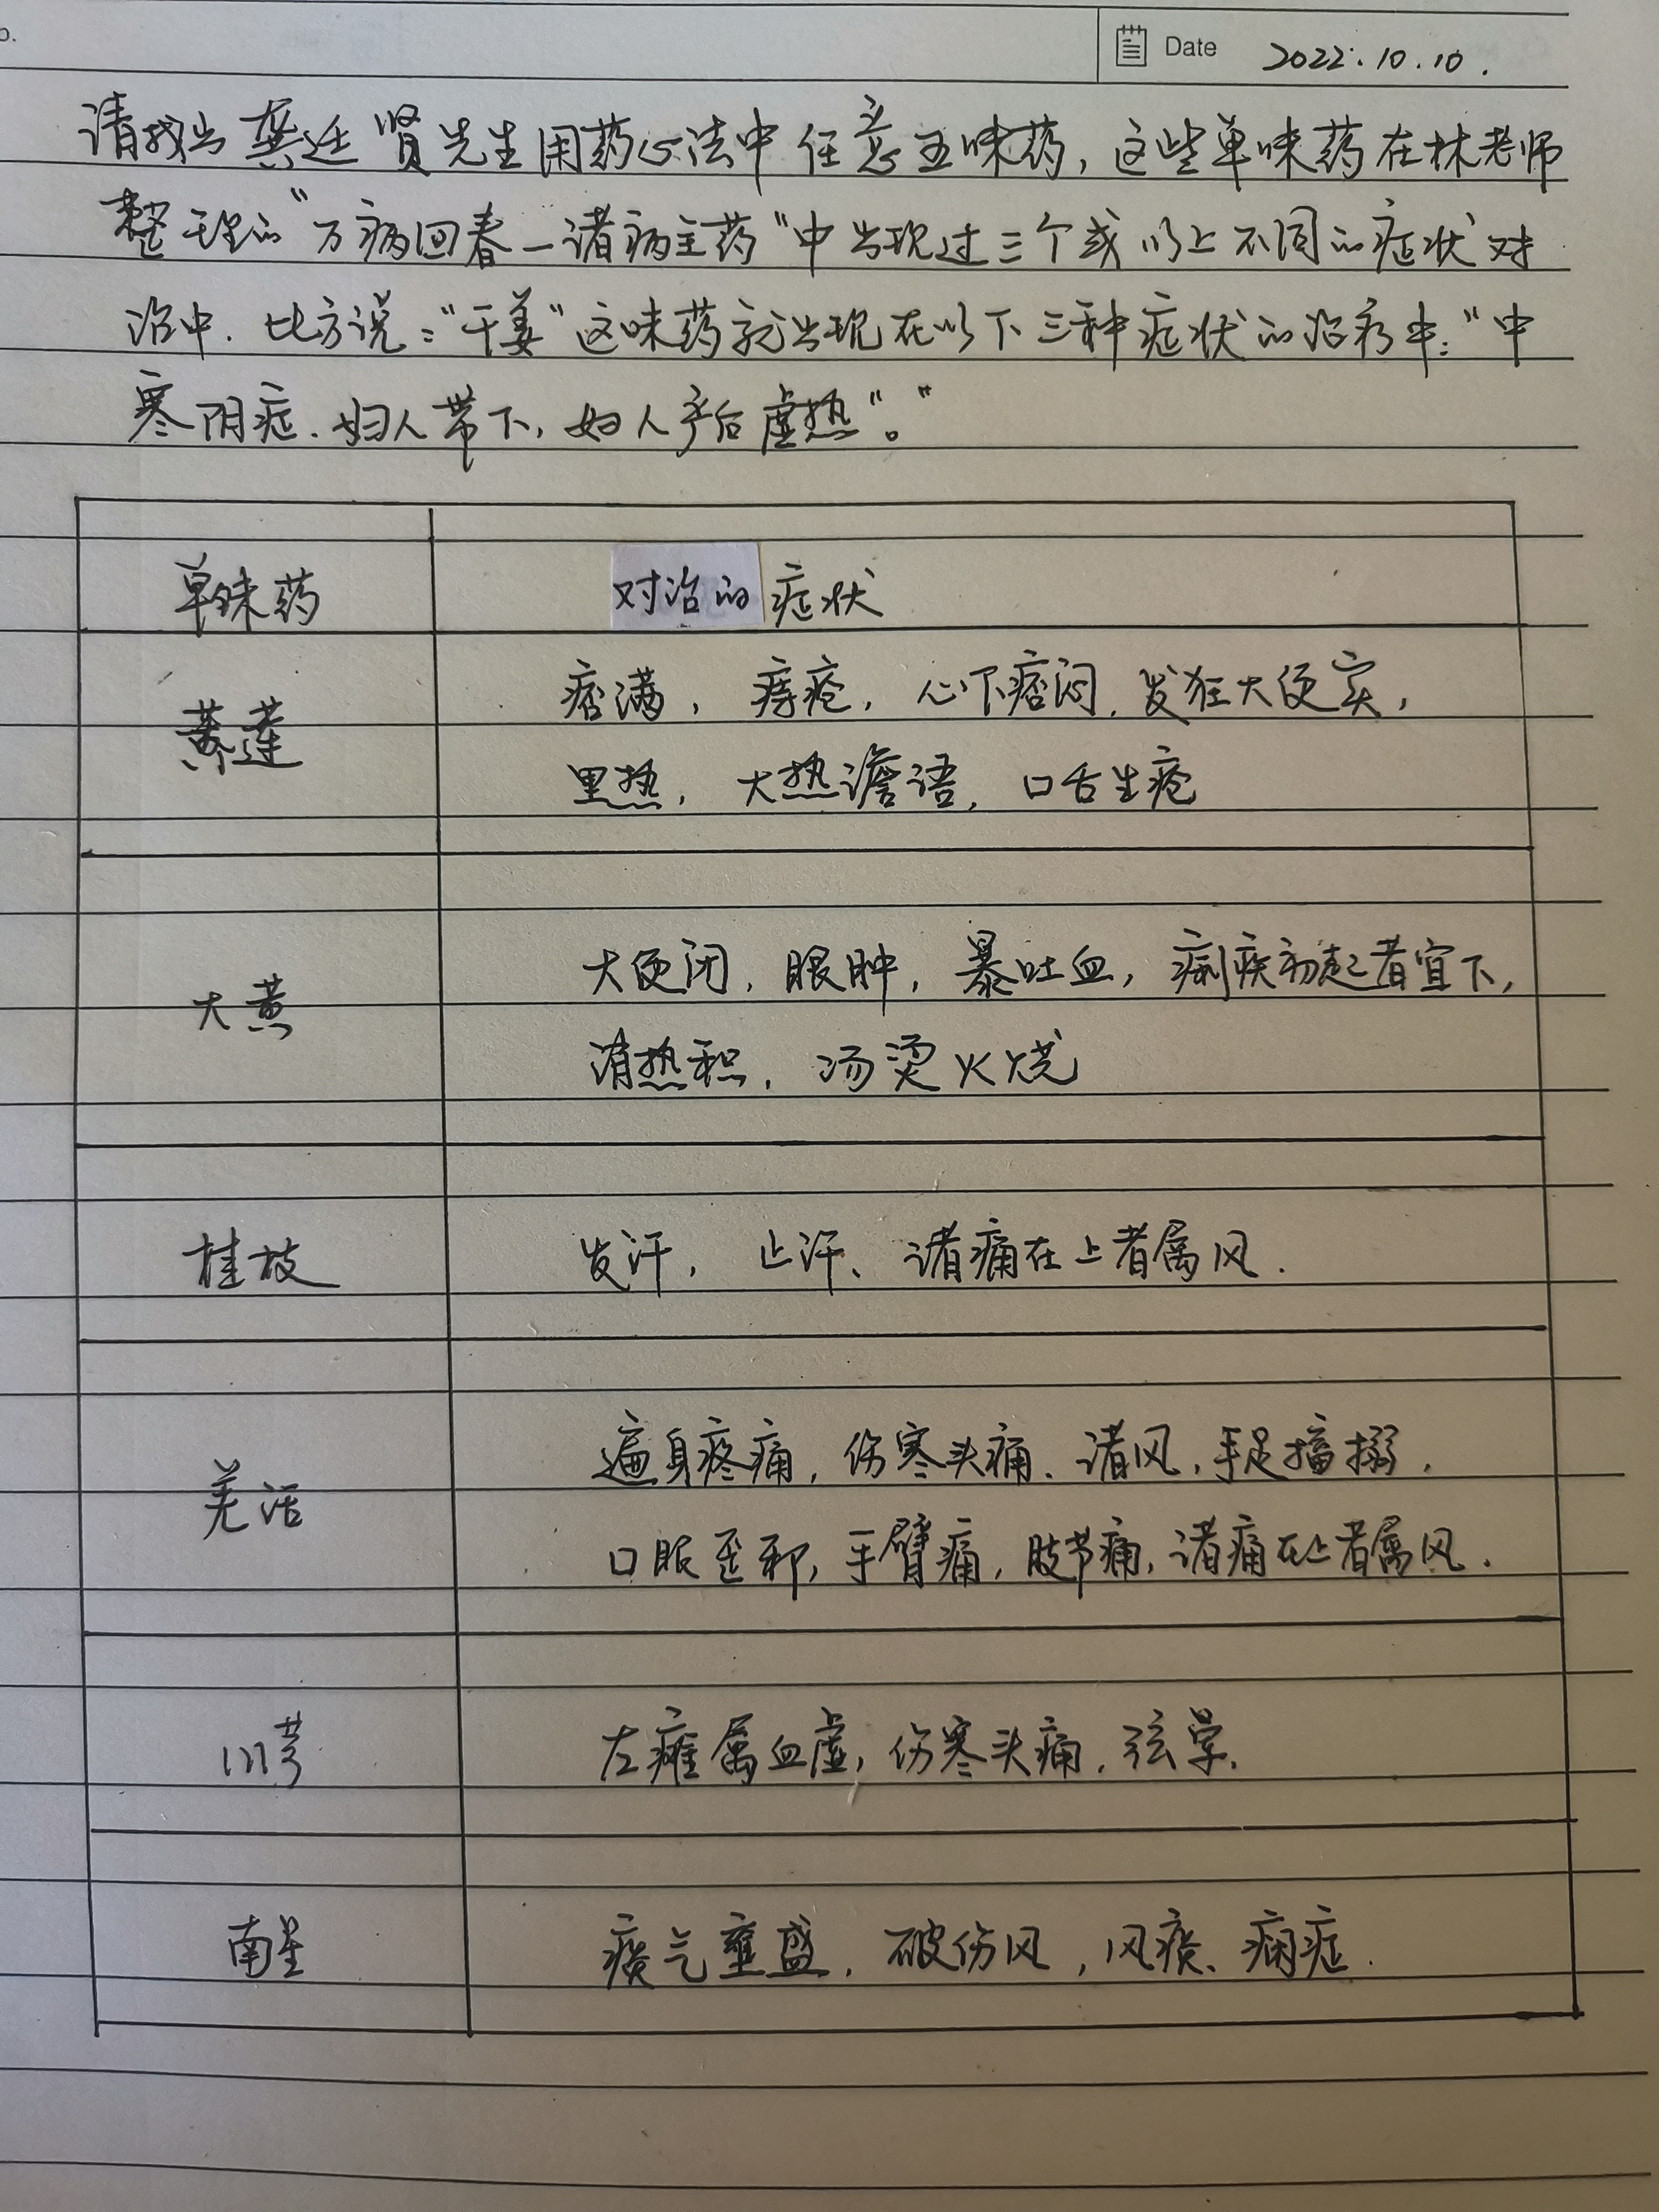 o.
Date 2022.10.10.
请找出龚廷贤先生用药心法中任意五味药,这些单味药在林老师
整理的"万病回春一诸病主药"中出现过三个或以上不同的症状对
治中.比方说:"干姜"这味药就出现在以下三种症状的治疗中:"中
寒阴症.妇人带下,妇人产后虚热""。
单味药 对治的症状
黄莲 痞满,痔疮,心下痞闷,发狂大便实,
里热,大热谵语,口舌生疮
大黄 大便闭,眼肿,暴吐血,痢疾初起者宜下,
清热积,汤烫火烧
桂枝 发汗,止汗、诸痛在上者属风.
羌活 遍身疼痛,伤寒头痛.诸风,手足搐搦,
口眼歪邪,手臂痛,肢节痛,诸痛在上者属风.
川芎 左瘫属血虚,伤寒头痛,弦晕.
南星 痰气壅盛,破伤风,风痰、痫症.